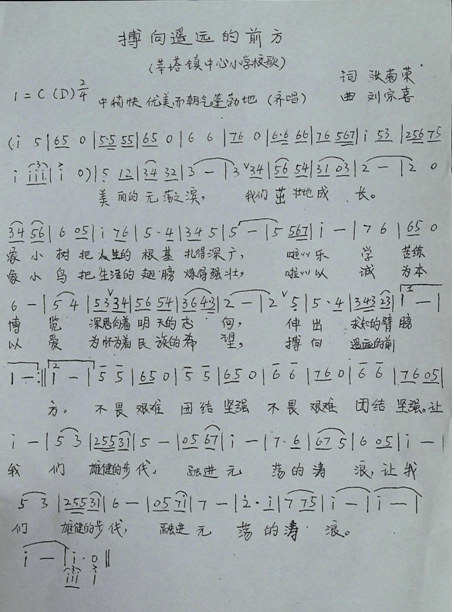 搏向遥远的前方
(莘塔镇中心小学校歌)
1=C (D) 2/4 词 张菊荣
中稍快 优美而朝气蓬勃地 (齐唱) 曲 刘宗喜
(i 5|65 0|5·5 55|65 0|6 6|76 0|6·6 66|76 567|i 53|256 75
i iii|i 0)|5 12|34 32|3 —|3 34|56 54|31 03|2 —|2 0
美丽的元荡之滨, 我们茁壮地成长。
34 56|6 05|i 76|5·4|34 5|5 —|5 567|i —|7 6|65 0
象小树把人生的根基扎得深广, 啦以乐学苦练
象小鸟把生活的翅膀练得强壮, 啦以以诚为本
6 —|5 4|53 34|56 54|36 43|2 —|2 5|5·4|343 23|1 —|
博览 深思向着明天的志向, 伸出求知的臂膀
以爱为怀向着民族的希望, 搏向遥远的前
1 —:‖1 —|5 5|65 0|5 5|65 0|6 6|76 0|6 6|76 05|
方。不畏艰难团结坚强不畏艰难团结坚强。让
i —|5 3|25531|5 —|05 67|i —|7·6|67 5|6 05|i —|
我们雄健的步伐, 融进元荡的涛浪,让我
5 3|25531|6 —|05 7i|7 —|2·i|7 75|i —|i —|
们雄健的步伐, 融进元荡的涛浪。
i —|i·0‖
iii i